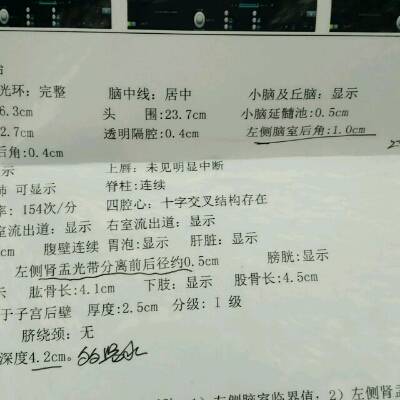 光环：完整 脑中线：居中 小脑及丘脑：显示
6.3cm 头 围：23.7cm 小脑延髓池：0.5cm
2.7cm 透明隔腔：0.4cm 左侧脑室后角：1.0cm
后角：0.4cm
示 上唇：未见明显中断
可显示 脊柱：连续
率：154次/分 四腔心：十字交叉结构存在
室流出道：显示 右室流出道：显示
cm 腹壁连续 胃泡：显示 肝脏：显示
左侧肾盂光带分离前后径约0.5cm 膀胱：显示
示 肱骨长：4.1cm 下肢：显示 股骨长：4.5cm
于子宫后壁 厚度：2.5cm 分级：Ⅰ级
脐绕颈：无
深度4.2cm。
1）左侧脑室临界值；2）左侧肾盂